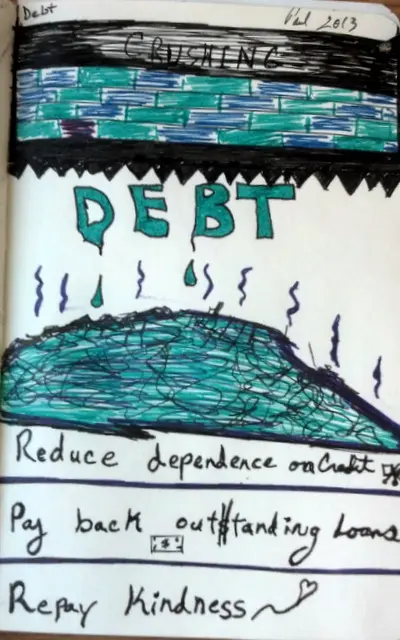 Debt
Paul 2013
CRUSHING
DEBT
Reduce dependence on Credit
Pay back out$tanding Loans
$
Repay Kindness